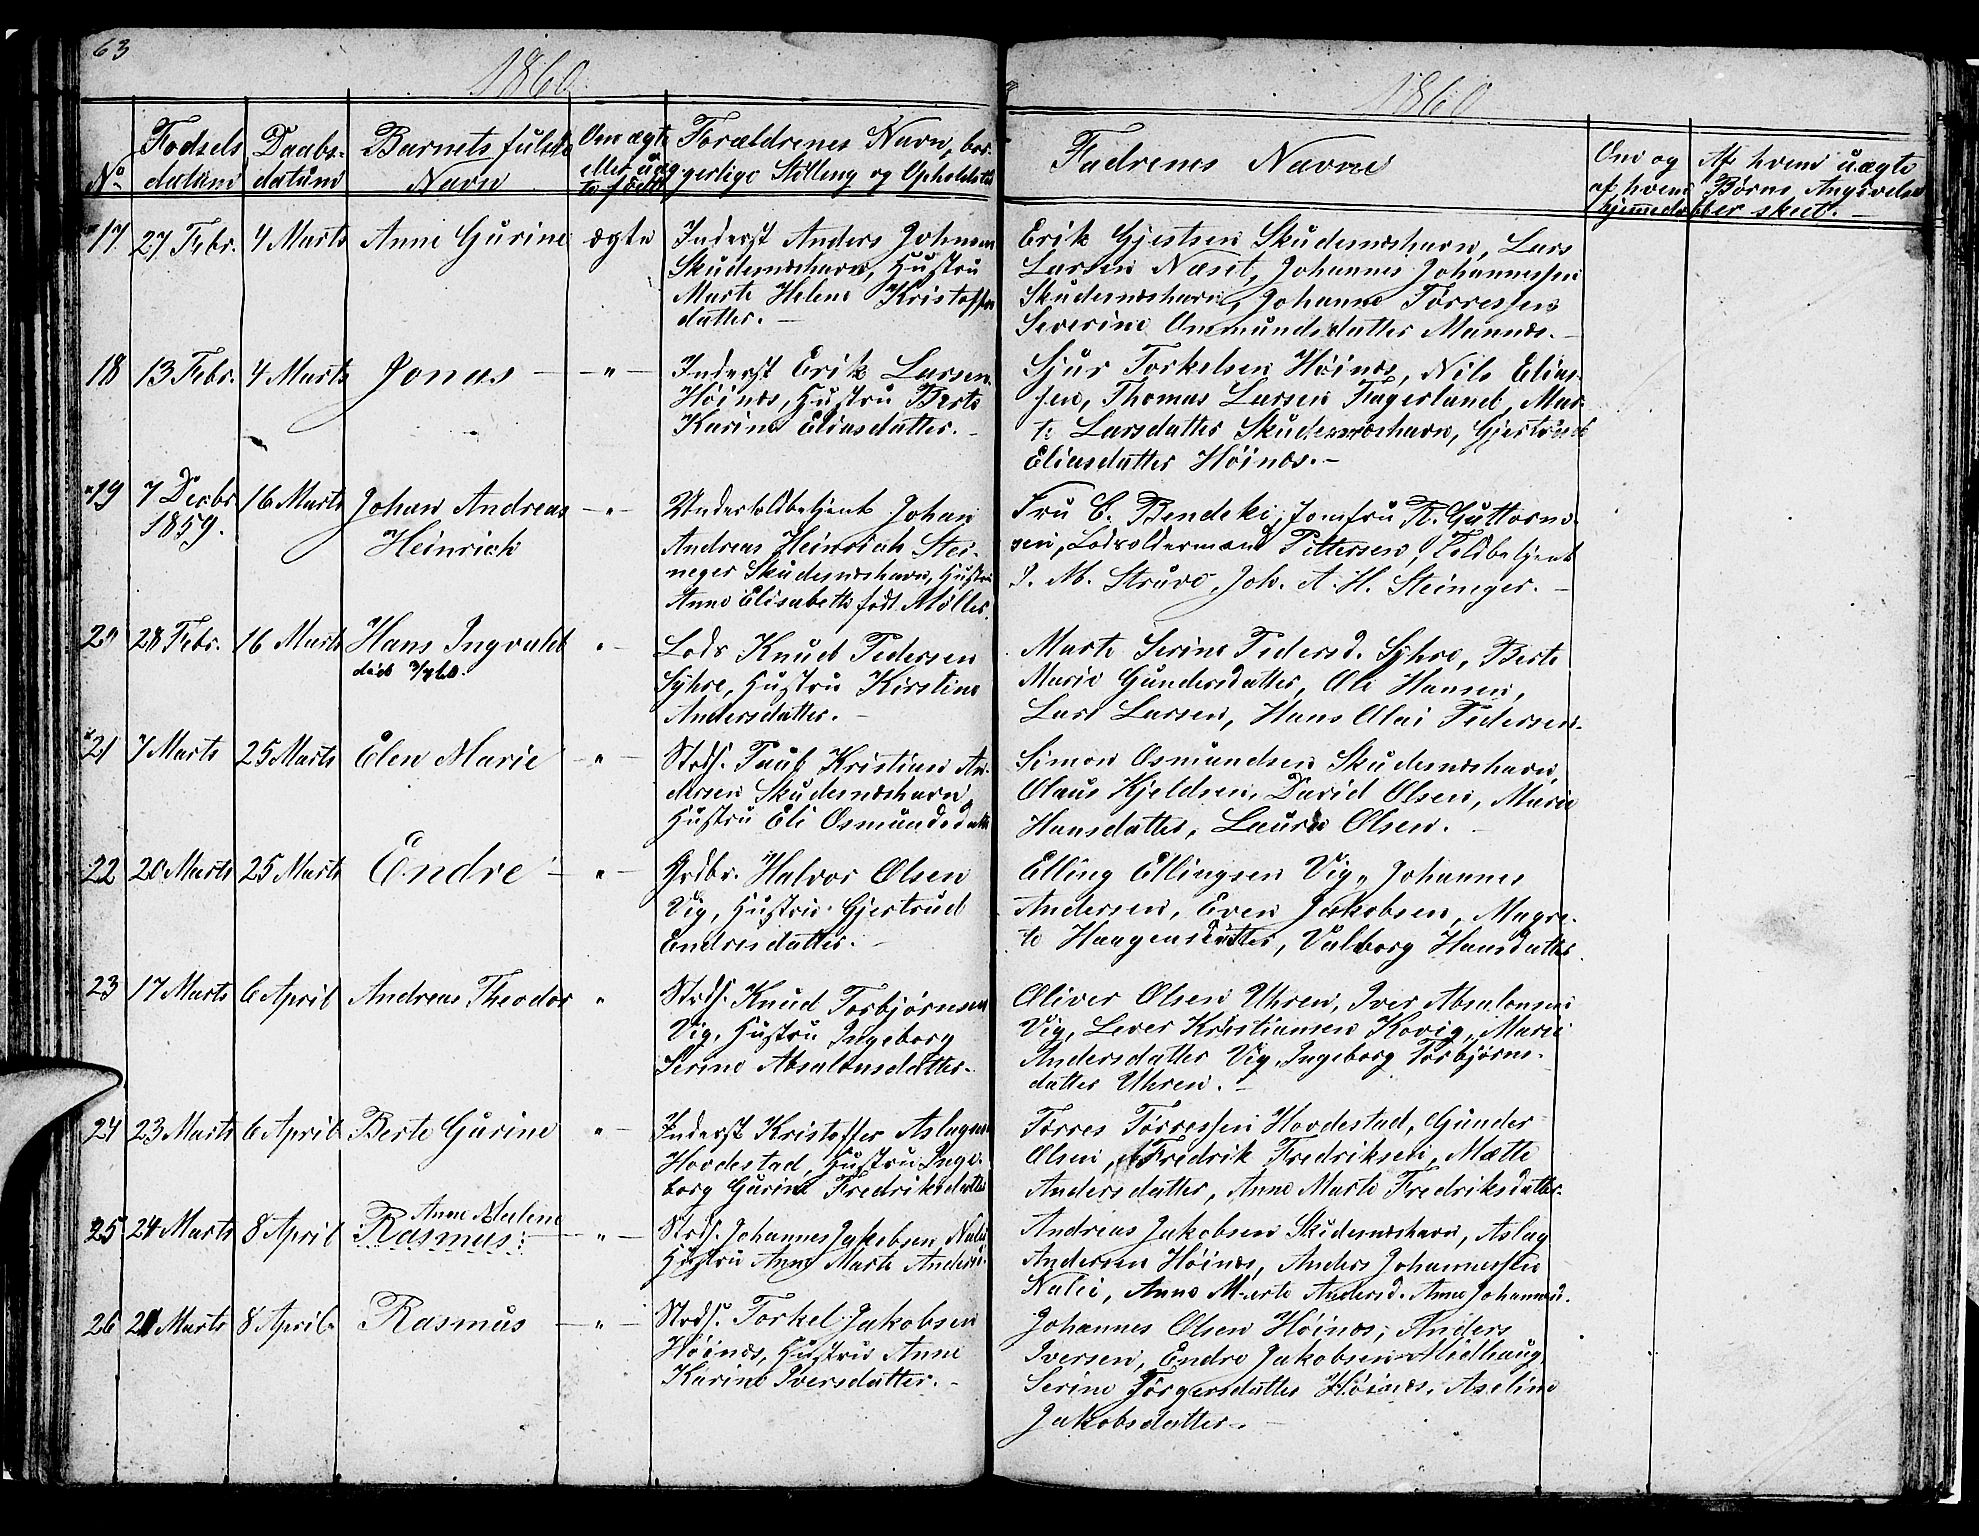 63
1860
1860
No
Fodsels datum
Daabs-datum
Barnets fulde Navn
Om ægte eller uæg te født
Forældrenes Navn, bor-gerlige Stilling og Opholdsted
Fadrenes Navne
Om og af hvem hjemmedøbt
Af hvem uægte Børns Angivelse er skeet.
17 27 Febr. 4 Marts Anne Gurine ægte Inderst Anders Johnsen
Skudesnæshavn, Hustru
Marte Helene Kristoffers
datter. —
Erik Gjertsen Skudesnæshavn, Lars
Larsen Næset, Johannes Johannessen
Skudesnæshavn, Johanne Tørressen
Severine Ommundsdatter Mannæs. —
18 13 Febr. 4 Marts Jonas — " — Inderst Erik Larsen
Høinæs, Hustru Berte
Karine Eliasdatter. —
Sjur Torkelsen Høinæs, Nils Elias-
sen, Thomas Larsen Fagerland, Mar-
te Larsdatter Skudesnæshavn, Gjertrud
Eliasdatter Høinæs. —
19 7 Decbr 1859. 16 Marts Johan Andreas Heinrich — " — Undertoldbetjent Johan
Andreas Heinrich Stei-
neger Skudesnæshavn, Hustru
Anne Elisabeth født Møller.
Fru C. Bendeke, Jomfru R. Guttorm-
sen, Lodsolderman Pettersen, Toldbetjent
I. M. Struve, Joh. A. H. Steineger. —
20 28 Febr. 16 Marts Hans Ingvald " Lods Knud Pedersen
død
Syhre, Hustru Kirstine
Andersdatter. —
Marte Serine Pedersd. Syhre, Berte
Marie Gundersdatter, Ole Hansen,
Lars Larsen, Hans Olai Pedersen.
21 7 Marts 25 Marts Elen Marie — " — Strds. Paul Kristian An-
dersen Skudesnæshavn,
Hustru Eli Osmundsdatter
Simon Osmundsen Skudesnæshavn,
Olaus Kjeldsen, David Olsen, Marie
Hansdatter, Laura Olsen. —
22 20 Marts 25 Marts Endre — " — Grdbr. Halvor Olsen
Vig, Hustru Gjertrud
Endresdatter. —
Elling Ellingsen Vig, Johannes
Andersen, Even Jakobsen, Magre-
te Haagensdatter, Valborg Hansdatter.
23 17 Marts 6 April Andreas Theodor " Strds. Knud Torbjørnsen
Vig, Hustru Ingeborg
Serine Absalonsdatter. —
Oliver Olsen Uhren, Iver Absalonsen
Vig, Lever Kristiansen Kovig, Marie
Andersdatter Vig, Ingeborg Torbjørns-
datter Uhren. —
24 23 Marts 6 April Berte Gurine — " — Inderst Kristoffer Aslagsen
Hovdestad, Hustru Inge-
borg Gurine Fredriksdatter
Tørres Tørressen Hovdestad, Gunder
Olsen, Fredrik Fredriksen, Mætte
Andersdatter, Anne Marte Fredriksdatter.
Anne Malene
25 24 Marts 8 April Rasmus: — " — Strds. Johannes Jakobsen Nalie
Hustru Anne Marte Andersd.
Andreas Jakobsen Skudesnæshavn, Aslag
Andersen Høinæs, Anders Johannessen
Nalie, Anne Marte Andersd. Anne Johannesd.
26 21 Marts 8 April. Rasmus — " — Strds. Torkel Jakobsen
Høinæs, Hustru Anne
Karine Iversdatter. —
Johannes Olsen Høinæs, Anders
Iversen, Endre Jakobsen Midhaug,
Serine Torgersdatter Høinæs, Aseline
Jakobsdatter. —